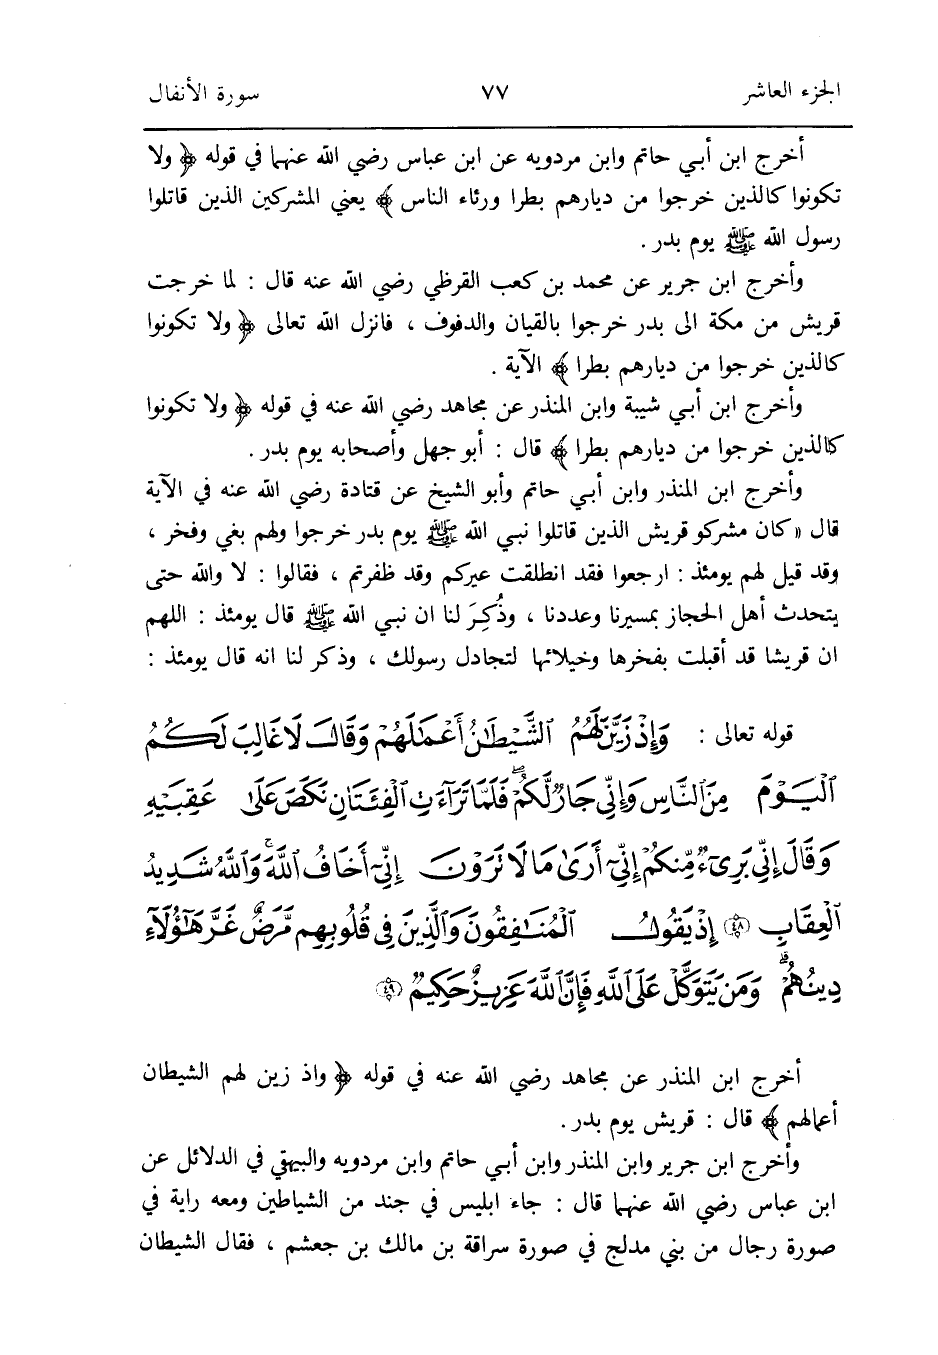 الجزء العاشر ٧٧ سورة الأنفال
أخرج ابن أبي حاتم وابن مردويه عن ابن عباس رضي الله عنهما في قوله ﴿ ولا
تكونوا كالذين خرجوا من ديارهم بطرا ورئاء الناس ﴾ يعني المشركين الذين قاتلوا
رسول الله ﷺ يوم بدر .
وأخرج ابن جرير عن محمد بن كعب القرظي رضي الله عنه قال : لما خرجت
قريش من مكة الى بدر خرجوا بالقيان والدفوف ، فانزل الله تعالى ﴿ ولا تكونوا
كالذين خرجوا من ديارهم بطرا ﴾ الآية .
وأخرج ابن أبي شيبة وابن المنذر عن مجاهد رضي الله عنه في قوله ﴿ ولا تكونوا
كالذين خرجوا من ديارهم بطرا ﴾ قال : أبو جهل وأصحابه يوم بدر .
وأخرج ابن المنذر وابن أبي حاتم وأبو الشيخ عن قتادة رضي الله عنه في الآية
قال « كان مشركو قريش الذين قاتلوا نبي الله ﷺ يوم بدر خرجوا ولهم بغي وفخر ،
وقد قيل لهم يومئذ : ارجعوا فقد انطلقت عيركم وقد ظفرتم ، فقالوا : لا والله حتى
يتحدث أهل الحجاز بمسيرنا وعددنا ، وذُكِرَ لنا ان نبي الله ﷺ قال يومئذ : اللهم
ان قريشا قد أقبلت بفخرها وخيلائها لتجادل رسولك ، وذكر لنا انه قال يومئذ :
قوله تعالى : وَإِذْ زَيَّنَ لَهُمُ ٱلشَّيْطَٰنُ أَعْمَٰلَهُمْ وَقَالَ لَا غَالِبَ لَكُمُ
ٱلْيَوْمَ مِنَ ٱلنَّاسِ وَإِنِّي جَارٌ لَّكُمْ ۖ فَلَمَّا تَرَآءَتِ ٱلْفِئَتَانِ نَكَصَ عَلَىٰ عَقِبَيْهِ
وَقَالَ إِنِّي بَرِيٓءٌ مِّنكُمْ إِنِّيٓ أَرَىٰ مَا لَا تَرَوْنَ إِنِّيٓ أَخَافُ ٱللَّهَ ۚ وَٱللَّهُ شَدِيدُ
ٱلْعِقَابِ ﴿٤٨﴾ إِذْ يَقُولُ ٱلْمُنَٰفِقُونَ وَٱلَّذِينَ فِي قُلُوبِهِم مَّرَضٌ غَرَّ هَٰٓؤُلَآءِ
دِينُهُمْ ۗ وَمَن يَتَوَكَّلْ عَلَى ٱللَّهِ فَإِنَّ ٱللَّهَ عَزِيزٌ حَكِيمٌ ﴿٤٩﴾
أخرج ابن المنذر عن مجاهد رضي الله عنه في قوله ﴿ واذ زين لهم الشيطان
أعمالهم ﴾ قال : قريش يوم بدر .
وأخرج ابن جرير وابن المنذر وابن أبي حاتم وابن مردويه والبيهقي في الدلائل عن
ابن عباس رضي الله عنهما قال : جاء ابليس في جند من الشياطين ومعه راية في
صورة رجال من بني مدلج في صورة سراقة بن مالك بن جعشم ، فقال الشيطان